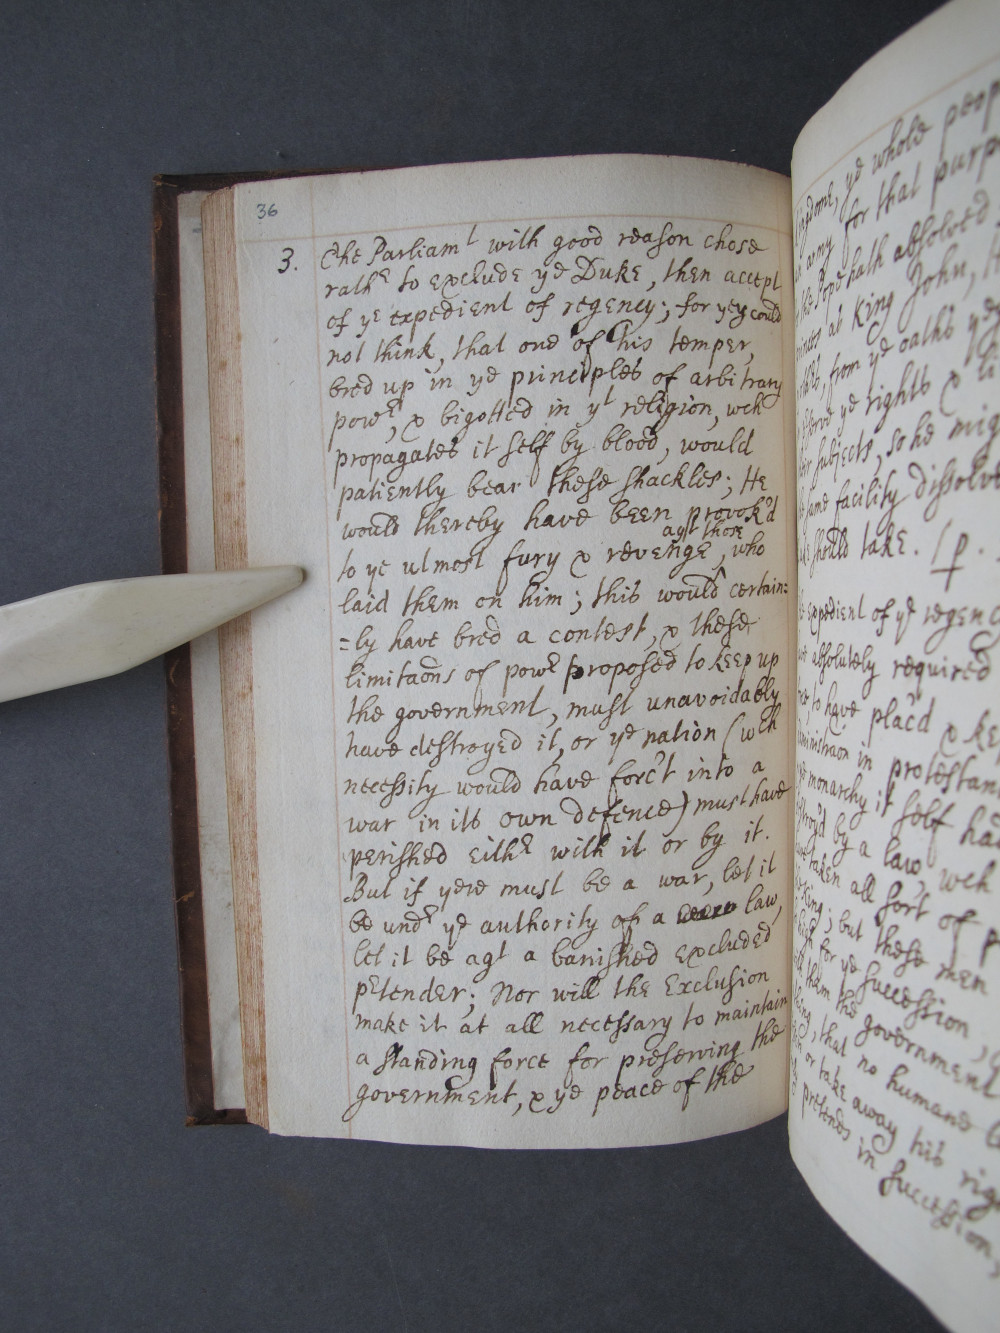 36
3. The Parliamt with good reason chose
rathr to exclude ye Duke, then accept
of ye expedient of regency; for yey could
not think, that one of his temper,
bred up in ye principles of arbitrary
powr, & bigotted in yt religion, wch
propagates it self by blood, would
patiently bear these shackles; He
would thereby have been provok'd
agst those
to ye utmost fury & revenge, who
laid them on him; this would certain=
=ly have bred a contest, & these
limitaōns of powr proposed to keep up
the government, must unavoidably
have destroyed it, or ye nation (wch
necessity would have forc't into a
war in its own defence) must have
perished eithr with it or by it.
But if yere must be a war, let it
be undr ye authority of a law,
let it be agt a banished excluded
pretender; Nor will the Exclusion
make it at all necessary to maintain
a standing force for preserving the
government, & ye peace of the
ye whole
army for that
the Pope hath absolved
at King John,
from ye oaths
ye rights &
subjects, so he
same facility
should take.
expedient of ye
absolutely required
to have plac'd &
in
monarchy it self had
by a law, wch
taken all sort of
King; but these men
for ye succession
them the government
that no humane
or take away his
pretends in succession,